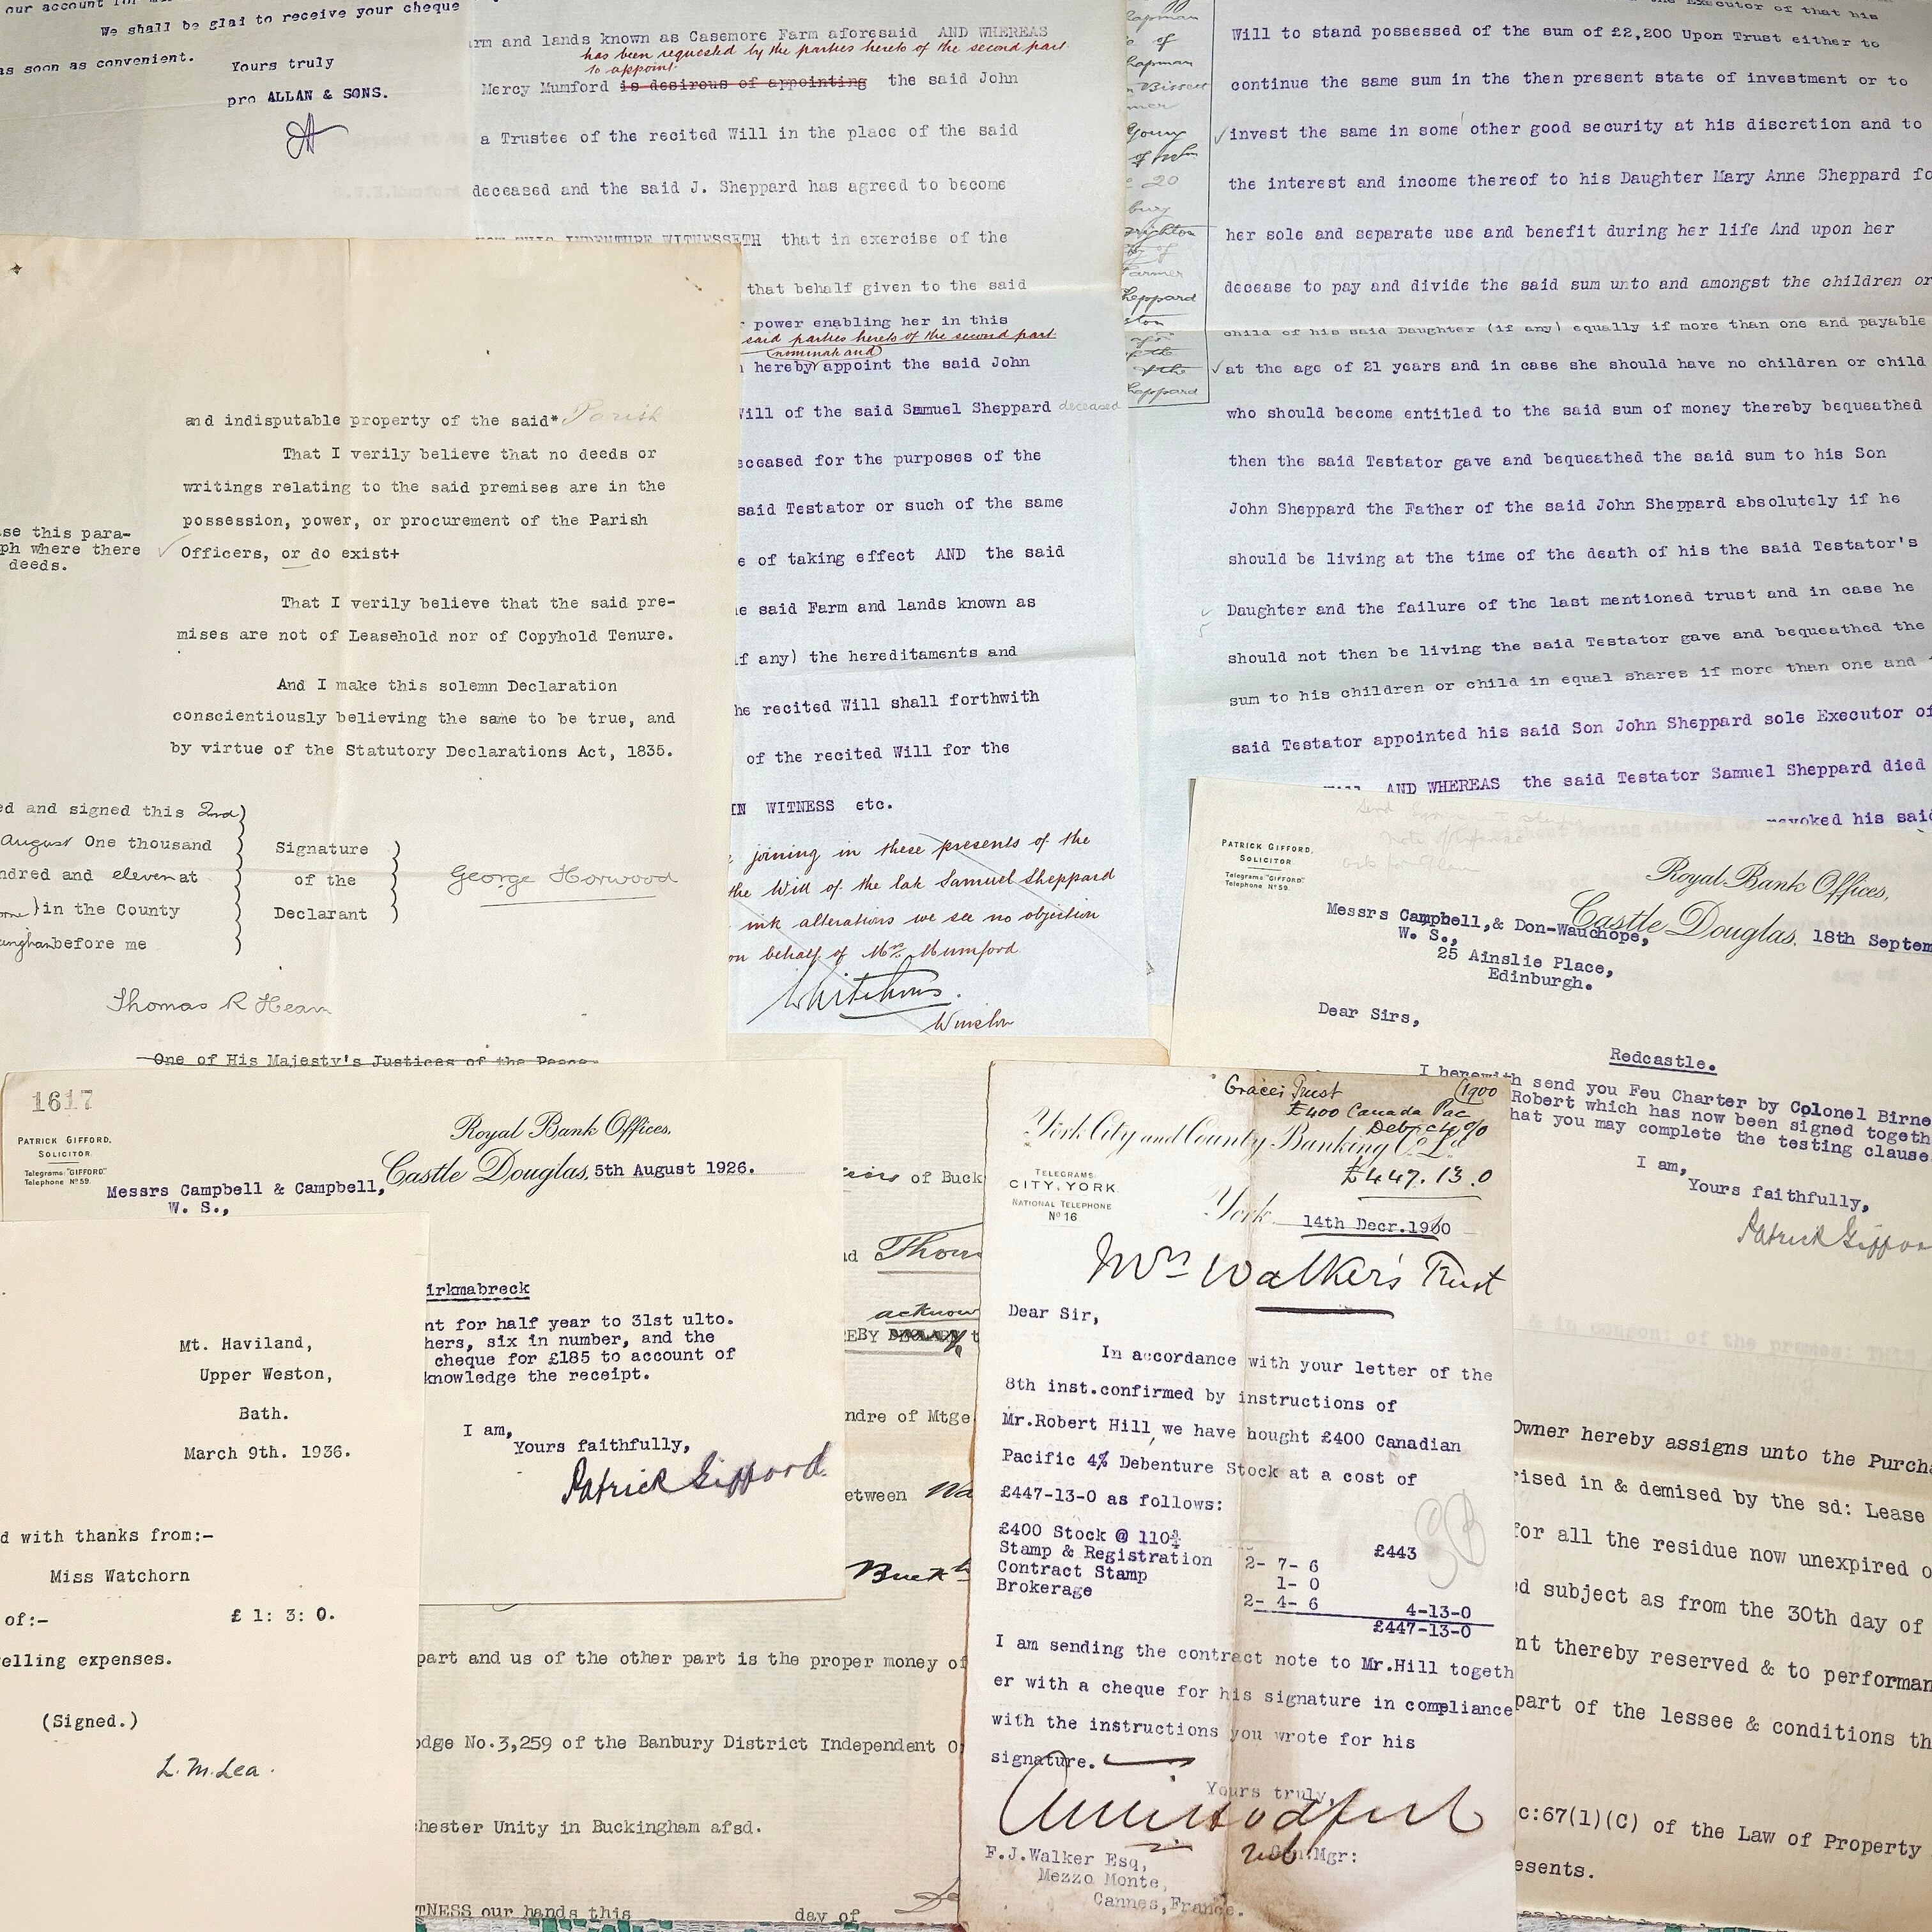 our account for
We shall be glad to receive your cheque
as soon as convenient.
Yours truly
pro ALLAN & SONS.
rm and lands known as Casemore Farm aforesaid AND WHEREAS
has been requested by the parties hereto of the second part
to appoint
Mercy Mumford is desirous of appointing the said John
a Trustee of the recited Will in the place of the said
deceased and the said J. Sheppard has agreed to become
THIS INDENTURE WITNESSETH that in exercise of the
that behalf given to the said
power enabling her in this
said parties hereto of the second part
nominate and
hereby appoint the said John
Will of the said Samuel Sheppard deceased
eceased for the purposes of the
said Testator or such of the same
e of taking effect AND the said
e said Farm and lands known as
if any) the hereditaments and
he recited Will shall forthwith
of the recited Will for the
IN WITNESS etc.
joining in these presents of the
the Will of the late Samuel Sheppard
ink alterations we see no objection
on behalf of Mrs Mumford
Winslow
Chapman
of
Chapman
Young
20
Brighton
of
Farmer
Sheppard
of the
Sheppard
the Executor of that his
Will to stand possessed of the sum of £2,200 Upon Trust either to
continue the same sum in the then present state of investment or to
invest the same in some other good security at his discretion and to
the interest and income thereof to his Daughter Mary Anne Sheppard fo
her sole and separate use and benefit during her life And upon her
decease to pay and divide the said sum unto and amongst the children or
child of his said Daughter (if any) equally if more than one and payable
at the age of 21 years and in case she should have no children or child
who should become entitled to the said sum of money thereby bequeathed
then the said Testator gave and bequeathed the said sum to his Son
John Sheppard the Father of the said John Sheppard absolutely if he
should be living at the time of the death of his the said Testator's
Daughter and the failure of the last mentioned trust and in case he
should not then be living the said Testator gave and bequeathed the
sum to his children or child in equal shares if more than one and
said Testator appointed his said Son John Sheppard sole Executor of
AND WHEREAS the said Testator Samuel Sheppard died
revoked his said
and indisputable property of the said* Parish
That I verily believe that no deeds or
writings relating to the said premises are in the
possession, power, or procurement of the Parish
Officers, or do exist+
se this para-
ph where there
deeds.
That I verily believe that the said pre-
mises are not of Leasehold nor of Copyhold Tenure.
And I make this solemn Declaration
conscientiously believing the same to be true, and
by virtue of the Statutory Declarations Act, 1835.
ed and signed this 2nd
August One thousand
ndred and eleven at
in the County
before me
Signature
of the
Declarant
George Horwood
Thomas R Hearn
One of His Majesty's Justices of the Peace
PATRICK GIFFORD,
SOLICITOR.
Telegrams "GIFFORD"
Telephone No 59.
Royal Bank Offices,
Castle Douglas, 18th Septem
Messrs Campbell, & Don-Wauchope,
W. S.,
25 Ainslie Place,
Edinburgh.
Dear Sirs,
Redcastle.
I herewith send you Feu Charter by Colonel Birne
Robert which has now been signed togeth
hat you may complete the testing clause
I am,
Yours faithfully,
Patrick Giffor
1617
PATRICK GIFFORD,
SOLICITOR.
Telegrams: "GIFFORD"
Telephone No 59.
Royal Bank Offices,
Castle Douglas, 5th August 1926.
Messrs Campbell & Campbell,
W. S.,
irkmabreck
nt for half year to 31st ulto.
hers, six in number, and the
cheque for £185 to account of
knowledge the receipt.
I am,
Yours faithfully,
Patrick Gifford
Mt. Haviland,
Upper Weston,
Bath.
March 9th. 1936.
d with thanks from:-
Miss Watchorn
of:-
£ 1: 3: 0.
elling expenses.
(Signed.)
L. M. Lea.
of Buck
Thom
acknow
EBY
ndre of Mtge
etween
part and us of the other part is the proper money of
odge No.3,259 of the Banbury District Independent O
chester Unity in Buckingham afsd.
TNESS our hands this day of
Grace's Trust
1900
£400 Canada Pac
Deb
York City and County Banking Co. Ld
£447.13.0
TELEGRAMS:
CITY, YORK.
NATIONAL TELEPHONE
No 16
York 14th Decr.1900
Mrs Walker's Trust
Dear Sir,
In accordance with your letter of the
8th inst.confirmed by instructions of
Mr.Robert Hill, we have bought £400 Canadian
Pacific 4% Debenture Stock at a cost of
£447-13-0 as follows:
£400 Stock @ 110¾ £443
Stamp & Registration 2- 7- 6
Contract Stamp 1- 0
Brokerage 2- 4- 6 4-13-0
£447-13-0
I am sending the contract note to Mr.Hill togeth
er with a cheque for his signature in compliance
with the instructions you wrote for his
signature.
Yours truly,
Mgr:
F.J.Walker Esq,
Mezzo Monte,
Cannes, France.
& in conson: of the premes: THIS
Owner hereby assigns unto the Purcha
rised in & demised by the sd: Lease
for all the residue now unexpired o
ed subject as from the 30th day of
nt thereby reserved & to performan
part of the lessee & conditions th
c:67(1)(C) of the Law of Property
esents.